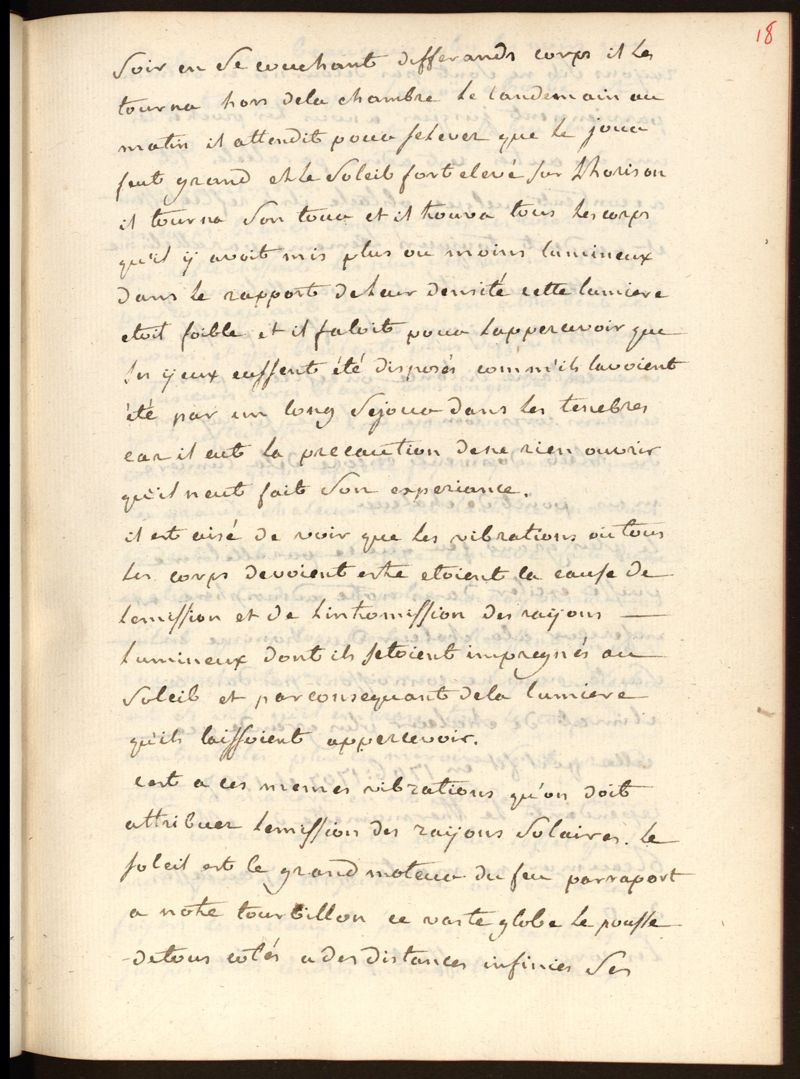 18
soir en se couchant differands corps il les
tourna hors dela chambre le landemain au
matin il attendit pour selever que le jour
feut grand et le soleil fort elevé sur Lhorison
il tourna son tour et il trouva tous les corps
qu'il y avoit mis plus ou moins lumineux
dans le rapport de leur densité cette lumiere
etoit foible et il faloit pour lappercevoir que
ses yeux eussent été disposés comm'ils lavoient
été par un long sejour dans les tenebres
car il eut la precaution dene rien ouvrir
qu'il neut fait son experiance.
il est aisé de voir que les vibrations ou tous
les corps devoient estre etoient la cause de
lemission et de lintromission des rayons —
lumineux dont ils setoient impregnés au
soleil et parconsequant dela lumiere
qu'ils laissoient appercevoir.
cest a ces memes vibrations qu'on doit
attribuer lemission des rayons solaires. le
soleil est le grand moteur du feu parraport
a notre tourbillon ce vaste globe le pousse
detous cotés a des distances infinies ses